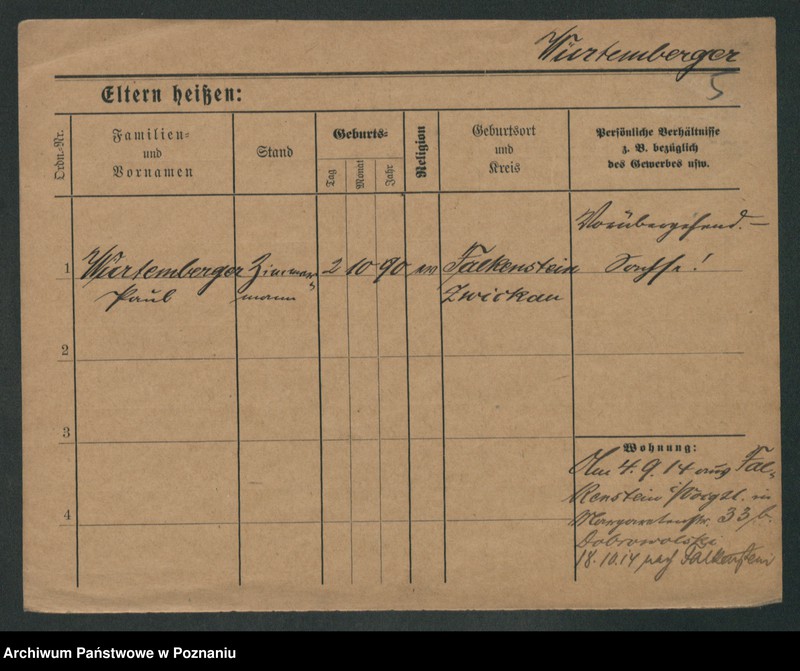 Wurtemberger
5
Eltern heißen:
Ordn.-Nr.
Familien-
und
Vornamen
Stand
Geburts-
Tag
Monat
Jahr
Religion
Geburtsort
und
Kreis
Persönliche Verhältnisse
z. B. bezüglich
des Gewerbes usw.
Vorübergehend.—
1 Wurtemberger Zimmer- 2 10 90 ev Falkenstein Sachse!
Paul mann Zwickau
2
3
Wohnung:
4
Am 4.9.14 aus Fal-
kenstein i/Voigtl. in
Margaretenstr. 33 b.
Dobrowolski
18.10.14 nach Falkenstein
Archiwum Państwowe w Poznaniu